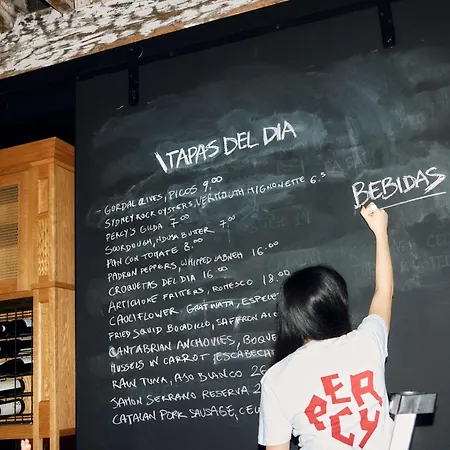 TAPAS DEL DIA
GORDAL OLIVES, PICOS 9.00
SYDNEY ROCK OYSTERS, VERMOUTH MIGNONETTE 6.5
PERCY'S GILDA 7.00
SOURDOUGH, NDUJA BUTTER 7.00
PAN CON TOMATE 8.00
PADRON PEPPERS, WHIPPED LABNEH 16.00
CROQUETAS DEL DIA 16.00
ARTICHOKE FRITTERS, ROMESCO 18.00
CAULIFLOWER GRATINATA, ESPELE
FRIED SQUID BOCADILLO, SAFFRON AIO
CANTABRIAN ANCHOVIES, BOQUE
MUSSELS IN CARROT, ESCABECHE
RAW TUNA, AJO BLANCO 26
JAMON SERRANO RESERVA 2
CATALAN PORK SAUSAGE,
BEBIDAS
PERCY